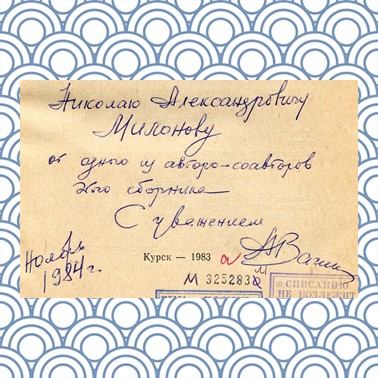 Николаю Александровичу
Милонову
от одного из авторо-соавторов
этого сборника
С уважением
Курск — 1983
Ноябрь
1984 г.
М 325283
СПИСАНИЮ
НЕ ПОДЛЕЖИТ